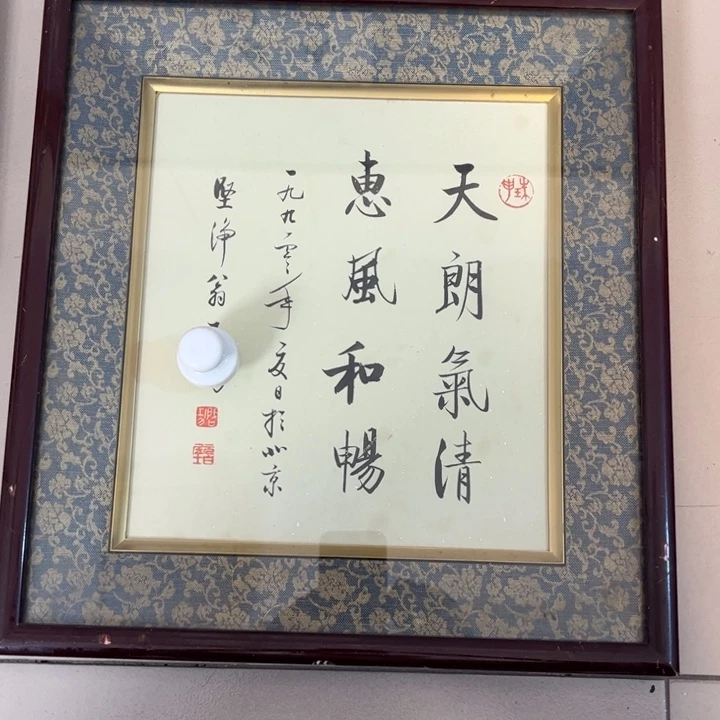 天朗氣清
惠風和暢
一九九零年夏日於北京
堅净翁